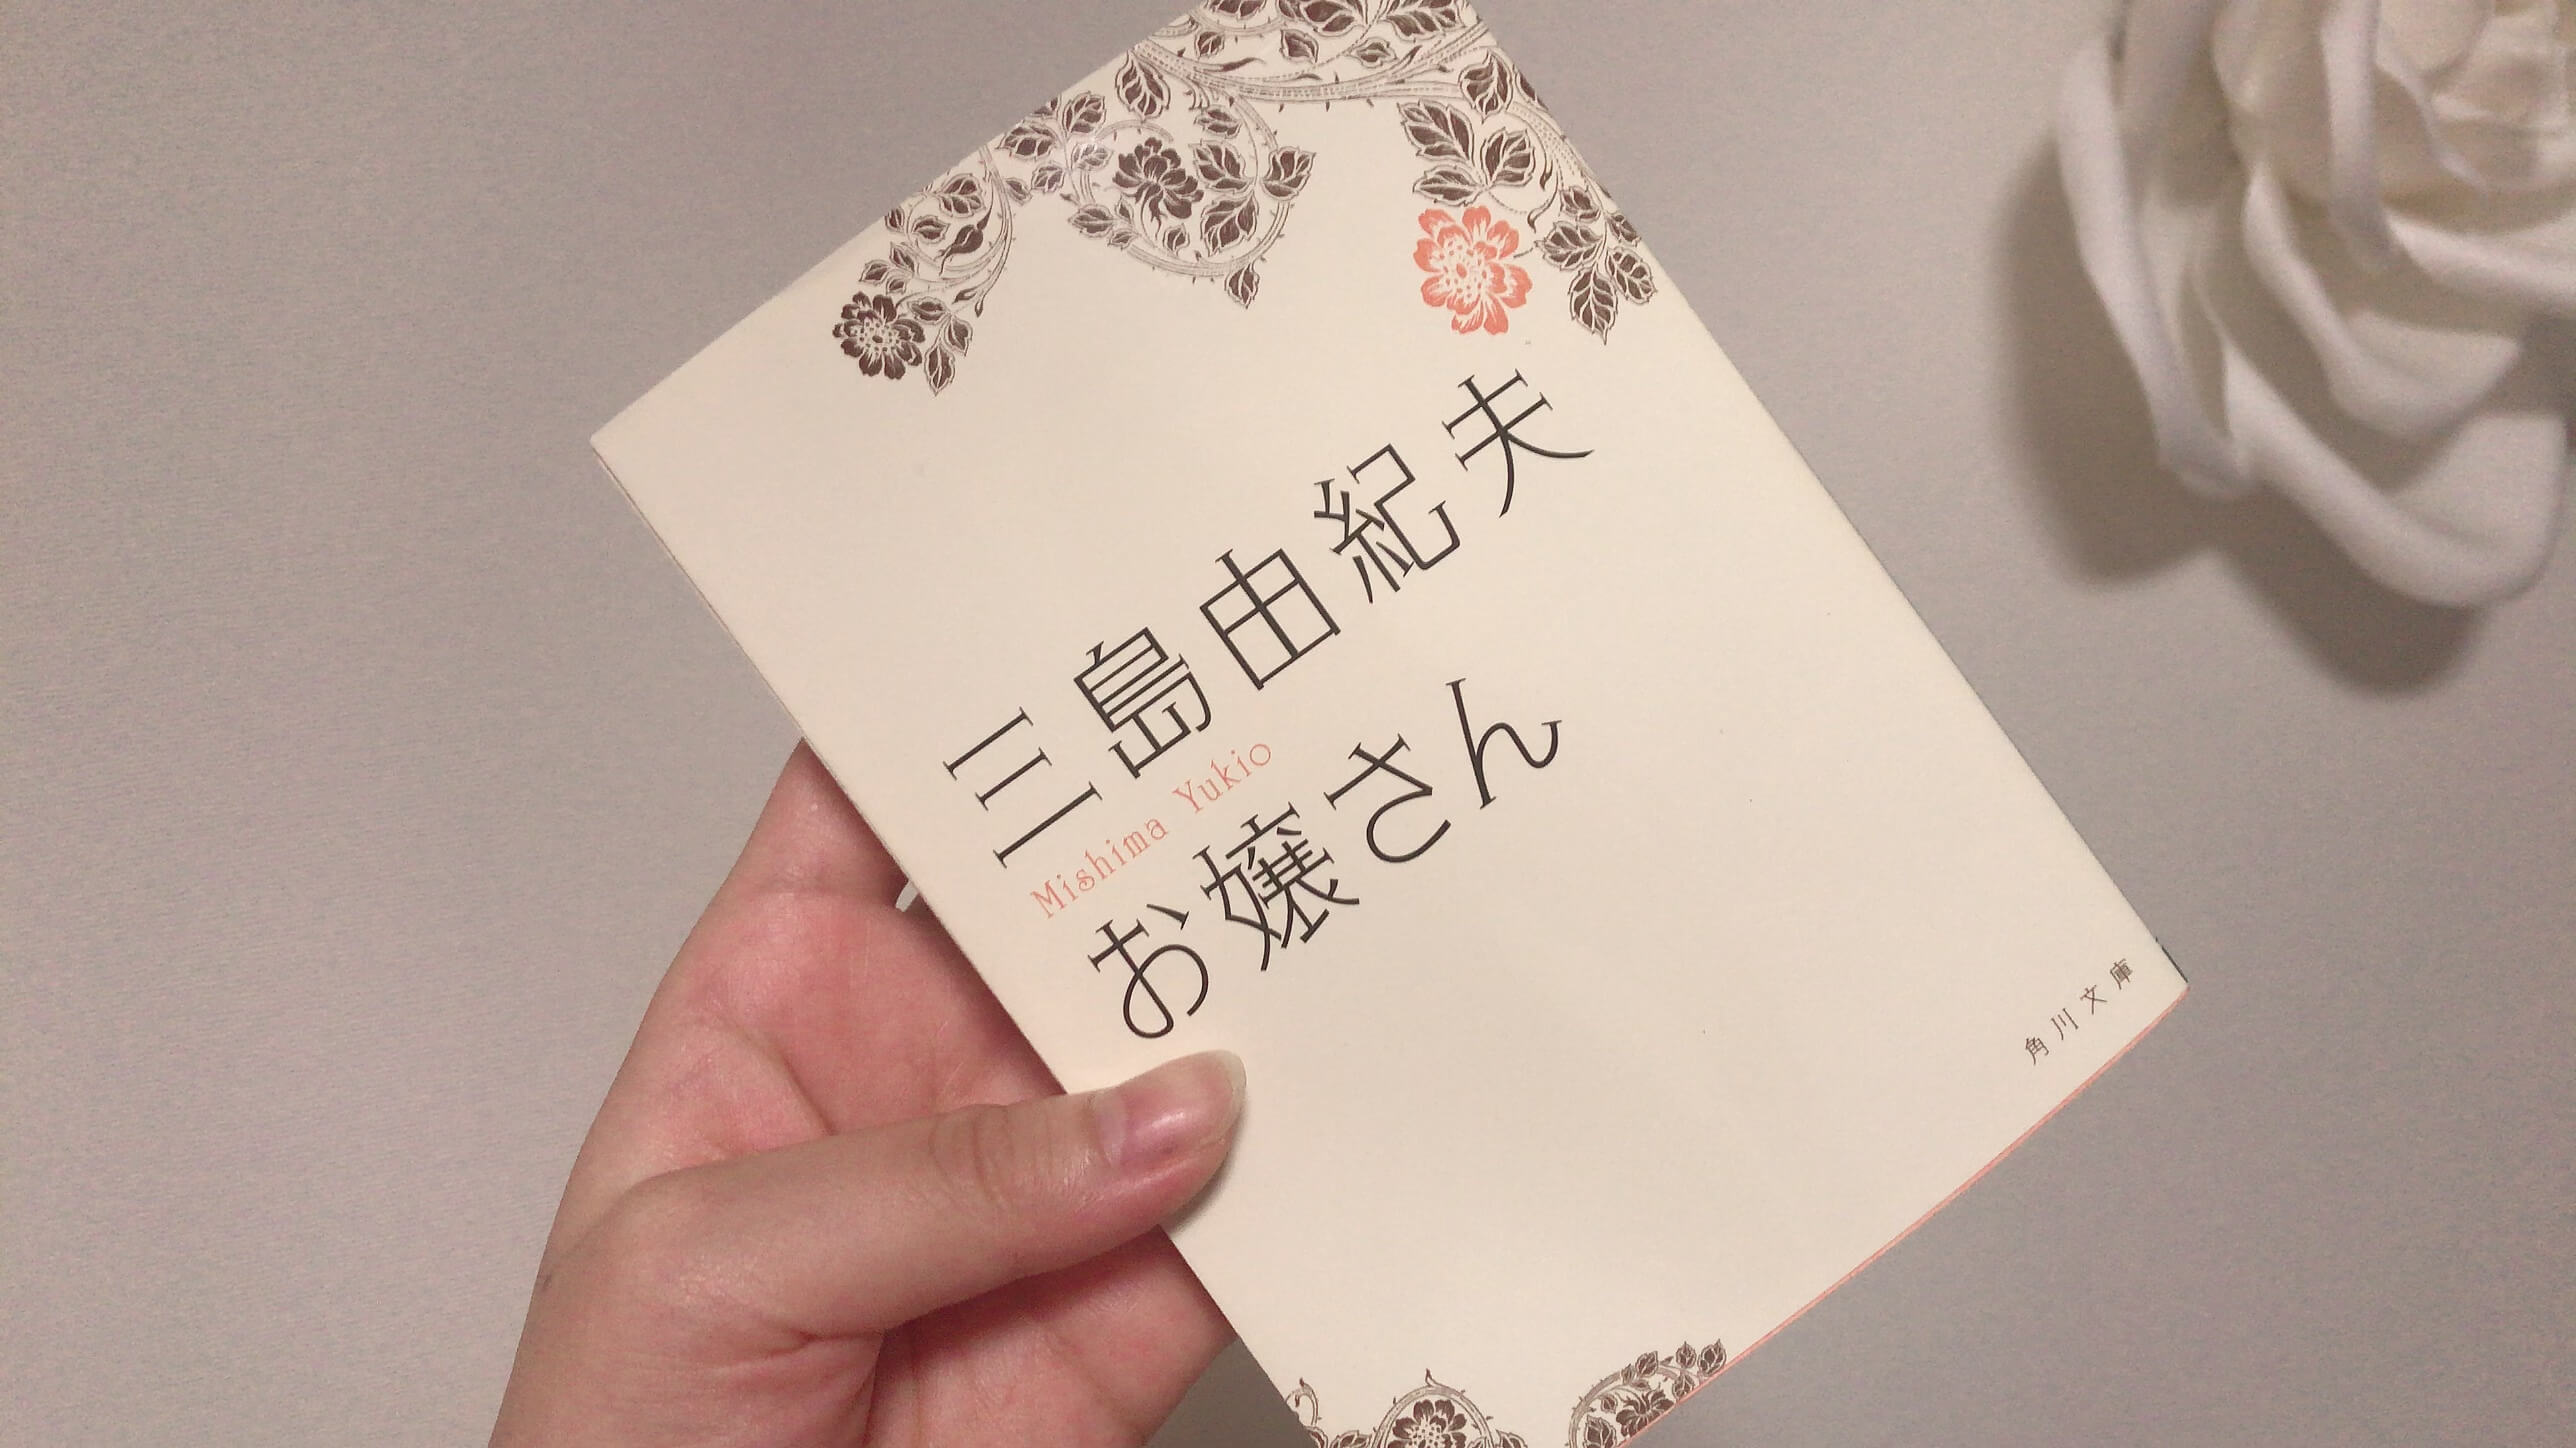 三島由紀夫
Mishima Yukio
お嬢さん
角川文庫